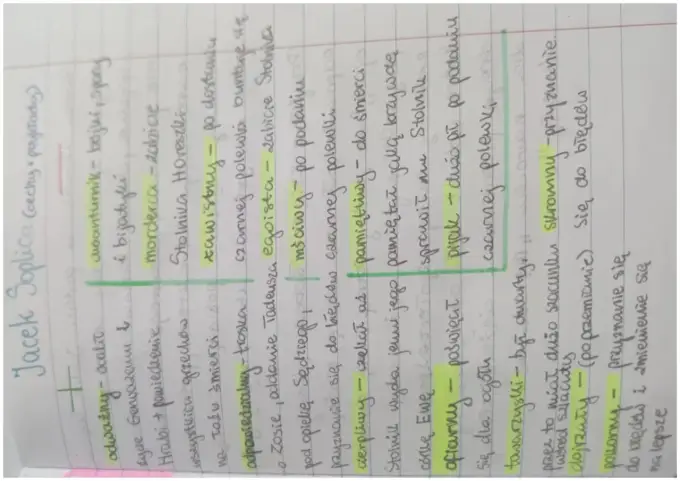 Jacek Soplica (cechy + przykłady)
+
odważny - ocalił
życie Gerwazemu i
Hrabi + powiedzenie
wszystkich grzechów
na łożu śmierci
odpowiedzialny - troska
o Zosię, oddanie Tadeusza
pod opiekę Sędziego,
przyznanie się do błędów
cierpliwy - czekał aż
Stolnik wyda jemu jego
córkę Ewę
ofiarny - poświęcał
się dla ogółu
towarzyski - był otwarty,
przez to miał dużo szacunku
wśród szlachty
dojrzały - (po przemianie)
pokorny - przyznanie się
do błędów i zmienienie się
na lepsze
-
awanturnik - bójki, spory
i bijatyki
morderca - zabicie
Stolnika Horeszki
zawistny - po dostaniu
czarnej polewki buntuje się
egoista - zabicie Stolnika
mściwy - po podaniu
czarnej polewki
pamiętliwy - do śmierci
pamiętał jaką krzywdę
sprawił mu Stolnik
pijak - dużo pił po podaniu
czarnej polewki
skromny - przyznanie
się do błędów